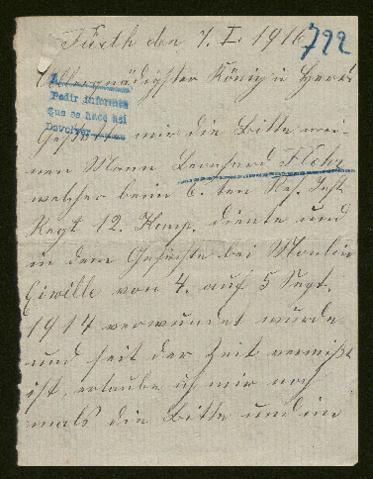 Fürth den 7. I. 1916
722
Allergnädigster König u Herr!
Pedir informes
Que se hace asi
Devolver
mir die Bitte mei-
nen Mann Leonhard Flohr
welcher beim 6. ten Res. Inft.
Regt 12. Komp. diente und
in dem Gefechte bei Moulin
von 4. auf 5 Sept.
1914 verwundet wurde
und seit der Zeit vermißt
ist, erlaube ich mir noch
mals die Bitte und in